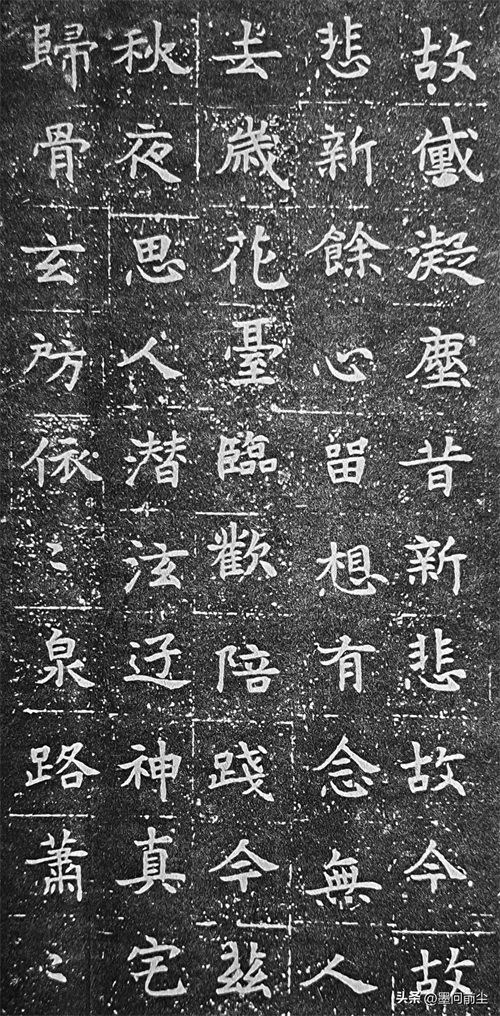 故黛凝塵昔新悲故今故
悲新餘心留想有念無人
去歲花臺臨歡陪踐今兹
秋夜思人潜泫迁神真宅
歸骨玄房依〻泉路蕭〻
头条 @墨何前尘